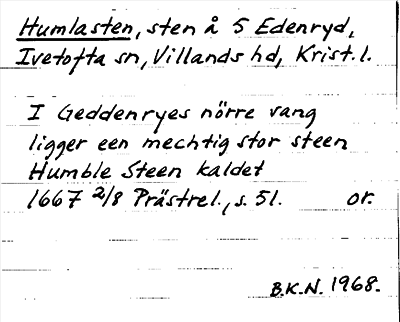 Humlasten, sten å 5 Edenryd,
Ivetofta sn, Villands hd, Krist. l.
I Geddenryes nörre vang
ligger een mechtig stor steen
Humble Steen kaldet
1667 2/8 Prästrel., s. 51. or.
B.K.N. 1968.